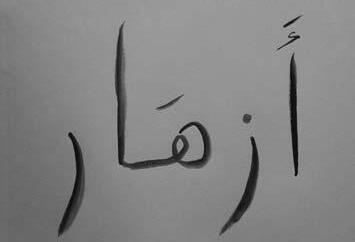 أَزهَار